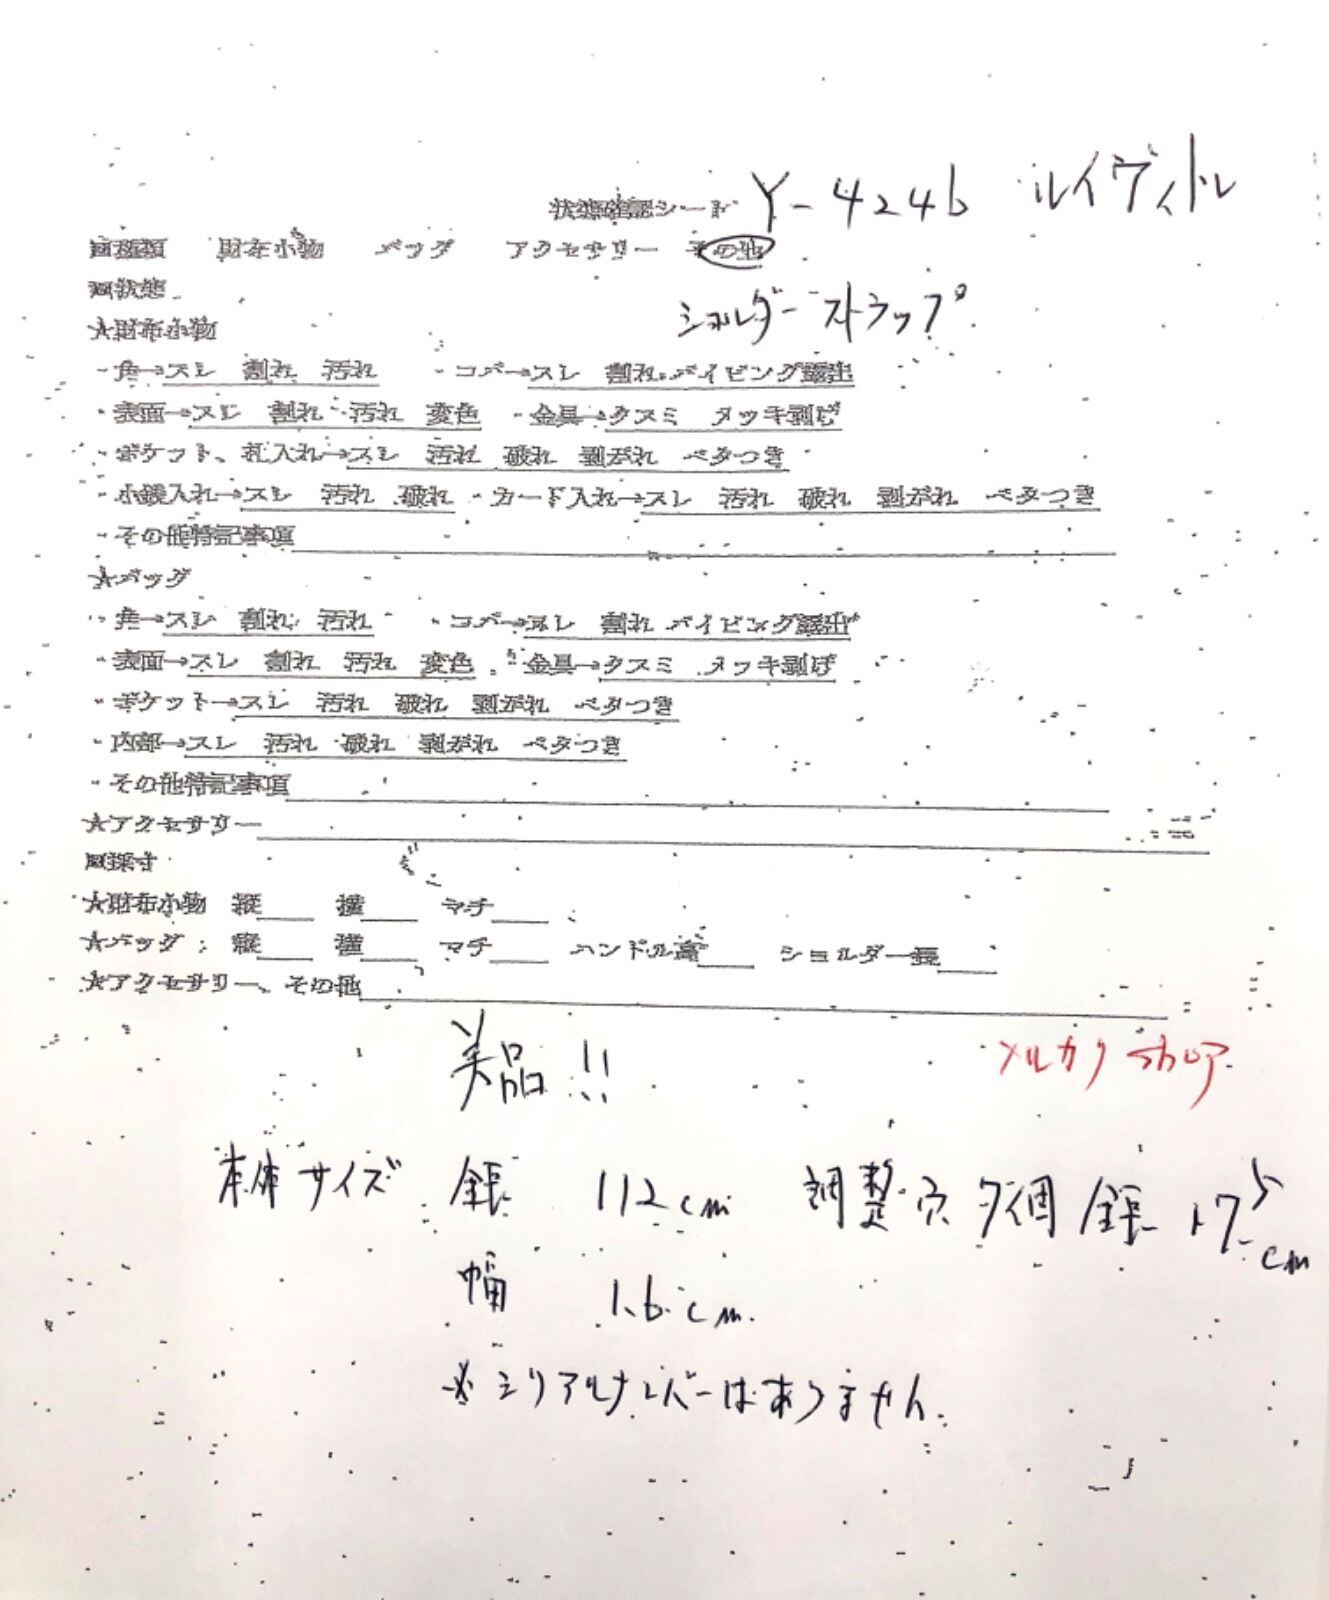 状態確認シート Y-4246 ルイヴィトン
■種類 財布小物 バッグ アクセサリー その他
■状態 ショルダーストラップ
★財布小物
・角→スレ 割れ 汚れ ・コバ→スレ 割れ パイピング露出
・表面→スレ 割れ 汚れ 変色 ・金具→クスミ メッキ剥げ
・ポケット、札入れ→スレ 汚れ 破れ 剥がれ ベタつき
・小銭入れ→スレ 汚れ 破れ ・カード入れ→スレ 汚れ 破れ 剥がれ ベタつき
・その他特記事項
★バッグ
・角→スレ 割れ 汚れ ・コバ→スレ 割れ パイピング露出
・表面→スレ 割れ 汚れ 変色 ・金具→クスミ メッキ剥げ
・ポケット→スレ 汚れ 破れ 剥がれ ベタつき
・内部→スレ 汚れ 破れ 剥がれ ベタつき
・その他特記事項
★アクセサリー
■採寸
★財布小物 縦 横 マチ
★バッグ 縦 横 マチ ハンドル高 ショルダー長
★アクセサリー、その他
美品!!
メルカリ
本体サイズ 全長 112cm 調整穴 全長
幅 1.6cm
※シリアルナンバーはありません